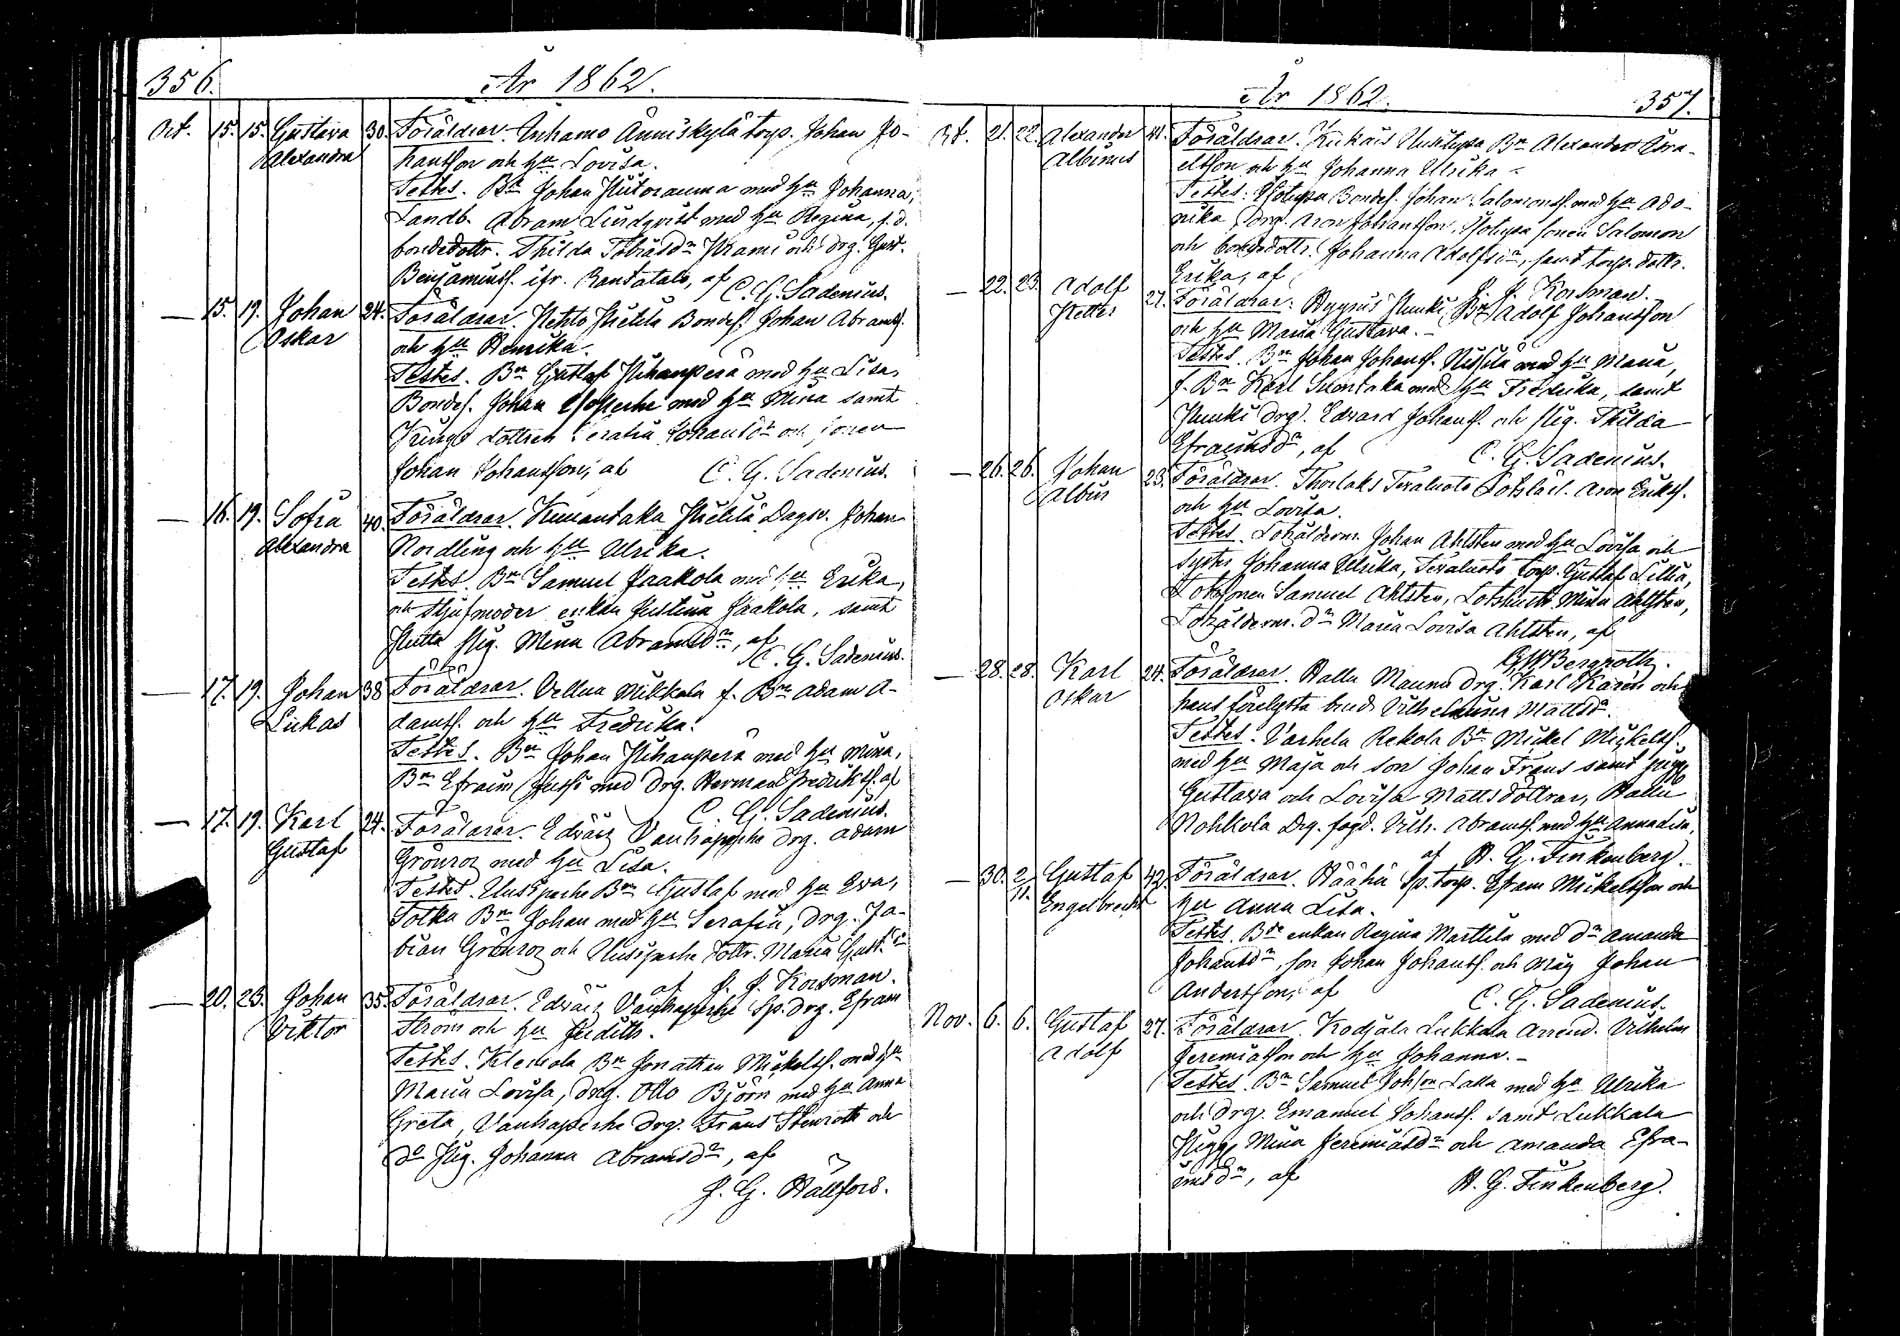 356.
År 1862.
Oct. 15. 15. Gustava Alexandra 30. Föräldrar. Anhamo Ånniskylä torp. Johan Jo-
hansson och hu Lovisa.
Testes. Bn Johan Hutorauma med hu Johanna,
Landb. Abram Lindqvist med hu Regina, f.d.
bondedottr. Thilda Tobiasdr och drg. Gust.
Benjaminss. ifr. Rantatalo, af C. G. Sadenius.
— 15. 19. Johan Oskar 24. Föräldrar. Hietilä Bondes. Johan Abramss.
och hu Henrika.
Testes. Bn Gustaf Juhanperä med hu Lisa,
Bondes. Johan med hu Mina samt
dottren Serafia Johansdr och sonen
Johan Johansson, af C. G. Sadenius.
— 16. 19. Sofia Alexandra 40. Föräldrar. Hietilä Dagsv. Johan
Nordling och hu Ulrika.
Testes. Bn Samuel Jaakola med hu Erika,
och Styfmoder enkan Justina Jaakola, samt
pig. Mina Abramsdr, af
C. G. Sadenius.
— 17. 19. Johan Lukas 38 Föräldrar. Vellua Mikkola f. Bn Adam A-
damss. och hu Fredrika.
Testes. Bn Johan Juhanperä med hu Mina,
Bn Efraim med Drg. Herman Fredrikss. af
C. G. Sadenius.
— 17. 19. Karl Gustaf 24. Föräldrar. Edväis Vanhaperhe drg. Adam
Grönroz med hu Lisa.
Testes. Uusiperhe Bn Gustaf med hu Eva,
Totka Bn Johan med hu Serafia, Drg. Fa-
bian Grönroz och Uusiperhe dottr. Maria Gustdr
af J. J. Korsman.
— 20. 23. Johan Viktor 35. Föräldrar. Edväis Vanhaperhe Sp. drg. Efram
Ström och hu Judith.
Testes. Klemola Bn Jonathan Mickelss. med hu
Maria Lovisa, drg. Otto Björn med hu Anna
Greta, Vanhaperhe drg. Frans Stenroth och
do pig. Johanna Abramsdr, af
J. G. Hällfors.
År 1862.
357.
Oct. 21. 22. Alexander Albinus 41. Föräldrar. Kukais Uusitupa Bn Alexander Isra-
elsson och hu Johanna Ulrika.
Testes. Isotupa Bondes. Johan Salomonss. med hu Ado-
nika, drg. Aron Johansson, Isotupa sonen Salomon
och bondedottr. Johanna Adolfsdr, samt torp. dottr.
Erika, af J. J. Korsman.
— 22. 23. Adolf 27. Föräldrar. Hunki Bn Adolf Johansson
och hu Maria Gustava.
Testes. Bn Johan Johanss. med hu Maria,
f. Bn Karl Suontaka med hu Fredrika, samt
Hunki drg. Edvard Johanss. och pig. Thilda
Efraimsdr, af C. G. Sadenius.
— 26. 26. Johan Albin 23. Föräldrar. Thorlaks Tevaluoto Lotslärl. Aron Erikss.
och hu Lovisa.
Testes. Lotsålderm. Johan Ahlsten med hu Lovisa och
syster Johanna Ulrika, Tevaluoto torp. Gustaf Lillia,
Lotssonen Samuel Ahlsten, Lotshustr. Mina Ahlsten,
Lotsålderm. dr Maria Lovisa Ahlsten, af
G. W. Bergroth.
— 28. 28. Karl Oskar 24. Föräldrar. Hallu Maunu drg. Karl Karén och
hans förelysta brud Vilhelmina Mattsdr.
Testes. Varhela Rekola Bn Mickel Mickelss.
med hu Maja och son Johan Frans samt
Gustava och Lovisa Mattsdöttrar, Hallu
Nohkola Drg. fogd. Vilh. Abramss. med hu Anna Lisa,
af H. G. Finkenberg.
— 30. 2/11. Gustaf Engelbrecht 42. Föräldrar. Häähä Sp. torp. Efram Mickelsson och
hu Anna Lisa.
Testes. Bde enkan Regina Marttila med dr Amanda
Johansdr, son Johan Johanss. och Måg Johan
Andersson, af C. G. Sadenius.
Nov. 6. 6. Gustaf Adolf 27. Föräldrar. Kodjala Lukkala Arrend. Vilhelm
Jeremiasson och hu Johanna.
Testes. Bn Samuel Johsson Lalla med hu Ulrika
och drg. Emanuel Johanss. samt Lukkala
pigg. Mina Jeremiasdr och Amanda Efra-
imsdr, af H. G. Finkenberg.